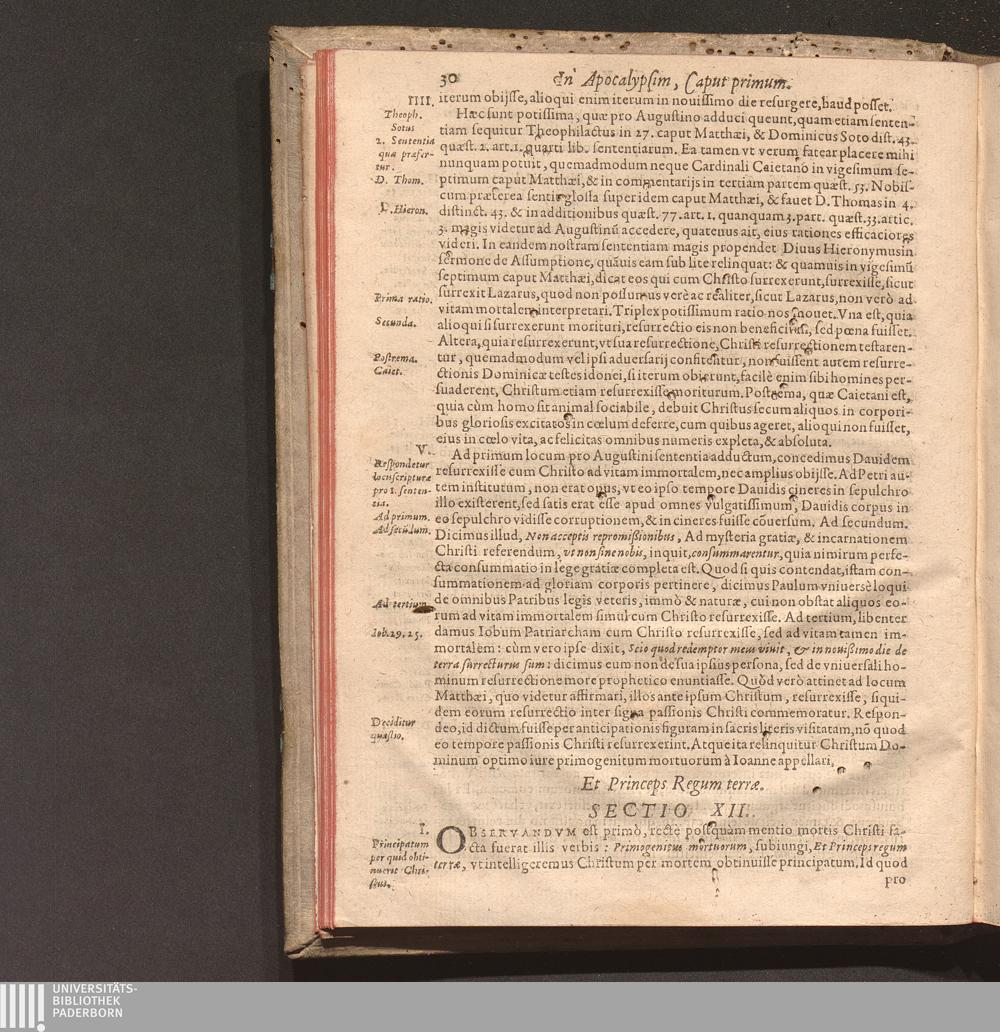 30 In Apocalypsim, Caput primum.
IIII.
iterum obijsse, alioqui enim iterum in nouissimo die resurgere, haud posset.
Theoph.
Sotus
2. Sententia
quæ præfer-
tur.
D. Thom.
D. Hieron.
Hæc sunt potissima, quæ pro Augustino adduci queunt, quam etiam senten-
tiam sequitur Theophilactus in 27. caput Matthæi, & Dominicus Soto dist. 43.
quæst. 2. art. 1. quarti lib. sententiarum. Ea tamen vt verum fatear placere mihi
nunquam potuit, quemadmodum neque Cardinali Caietano in vigesimum se-
ptimum caput Matthæi, & in commentarijs in tertiam partem quæst. 53. Nobis-
cum præterea sentit glossa super idem caput Matthæi, & fauet D. Thomas in 4.
distinct. 43. & in additionibus quæst. 77. art. 1. quanquam 3. part. quæst. 53. artic.
3. magis videtur ad Augustinũ accedere, quatenus ait, eius rationes efficaciores
videri. In eandem nostram sententiam magis propendet Diuus Hieronymus in
sermone de Assumptione, quãuis eam sub lite relinquat: & quamuis in vigesimũ
septimum caput Matthæi, dicat eos qui cum Christo surrexerunt, surrexisse, sicut
Prima ratio.
surrexit Lazarus, quod non possumus verè ac realiter, sicut Lazarus, non verò ad
vitam mortalem interpretari. Triplex potissimum ratio nos mouet. Vna est, quia
Secunda.
alioqui si surrexerunt morituri, resurrectio eis non beneficium, sed pœna fuisset.
Altera, quia resurrexerunt, vt sua resurrectione, Christi resurrectionem testaren-
Postrema.
Caiet.
tur, quemadmodum vel ipsi aduersarij confitentur, non fuissent autem resurre-
ctionis Dominicæ testes idonei, si iterum obierunt, facilè enim sibi homines per-
suaderent, Christum etiam resurrexisse moriturum. Postrema, quæ Caietani est,
quia cùm homo sit animal sociabile, debuit Christus secum aliquos in corpori-
bus gloriosis excitatos in cœlum deferre, cum quibus ageret, alioqui non fuisset,
eius in cœlo vita, ac felicitas omnibus numeris expleta, & absoluta.
V.
Respondetur
locis scripturæ
pro 1. senten-
tia.
Ad primum.
Ad secũdum.
Ad primum locum pro Augustini sententia adductum, concedimus Dauidem
resurrexisse cum Christo ad vitam immortalem, nec amplius obijsse. Ad Petri au-
tem institutum, non erat opus, vt eo ipso tempore Dauidis cineres in sepulchro
illo existerent, sed satis erat esse apud omnes vulgatissimum, Dauidis corpus in
eo sepulchro vidisse corruptionem, & in cineres fuisse cõuersum. Ad secundum.
Dicimus illud, Non acceptis repromißionibus, Ad mysteria gratiæ, & incarnationem
Christi referendum, vt non sine nobis, inquit, consummarentur, quia nimirum perfe-
cta consummatio in lege gratiæ completa est. Quod si quis contendat, istam con-
summationem ad gloriam corporis pertinere, dicimus Paulum vniuersè loqui
Ad tertium.
de omnibus Patribus legis veteris, immò & naturæ, cui non obstat aliquos eo-
rum ad vitam immortalem simul cum Christo resurrexisse. Ad tertium, libenter
Iob. 19. 25.
damus Iobum Patriarcham cum Christo resurrexisse, sed ad vitam tamen im-
mortalem: cùm vero ipse dixit, Scio quod redemptor meus viuit, & in nouißimo die de
terra surrecturus sum: dicimus eum non de sua ipsius persona, sed de vniuersali ho-
minum resurrectione more prophetico enuntiasse. Quòd verò attinet ad locum
Matthæi, quo videtur affirmari, illos ante ipsum Christum, resurrexisse, siqui-
Deciditur
quæstio.
dem eorum resurrectio inter signa passionis Christi commemoratur. Respon-
deo, id dictum fuisse per anticipationis figuram in sacris literis visitatam, nõ quod
eo tempore passionis Christi resurrexerint. Atque ita relinquitur Christum Do-
minum optimo iure primogenitum mortuorum à Ioanne appellari.
Et Princeps Regum terræ.
SECTIO XII.
I.
Principatum
per quid obti-
nuerit Chri-
stus.
OBSERVANDVM est primò, recte postquam mentio mortis Christi fa-
cta fuerat illis verbis: Primogenitus mortuorum, subiungi, Et Princeps regum
terræ, vt intelligeremus Christum per mortem obtinuisse principatum. Id quod
pro
UNIVERSITÄTS-
BIBLIOTHEK
PADERBORN